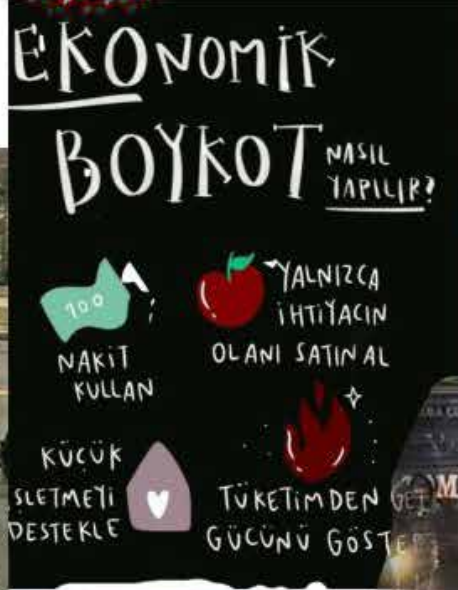 EKONOMİK
BOYKOT
NASIL
YAPILIR?
100
NAKİT
KULLAN
YALNIZCA
İHTİYACIN
OLANI SATIN AL
KÜÇÜK
İŞLETMEYİ
DESTEKLE
TÜKETİMDEN
GÜCÜNÜ GÖSTE